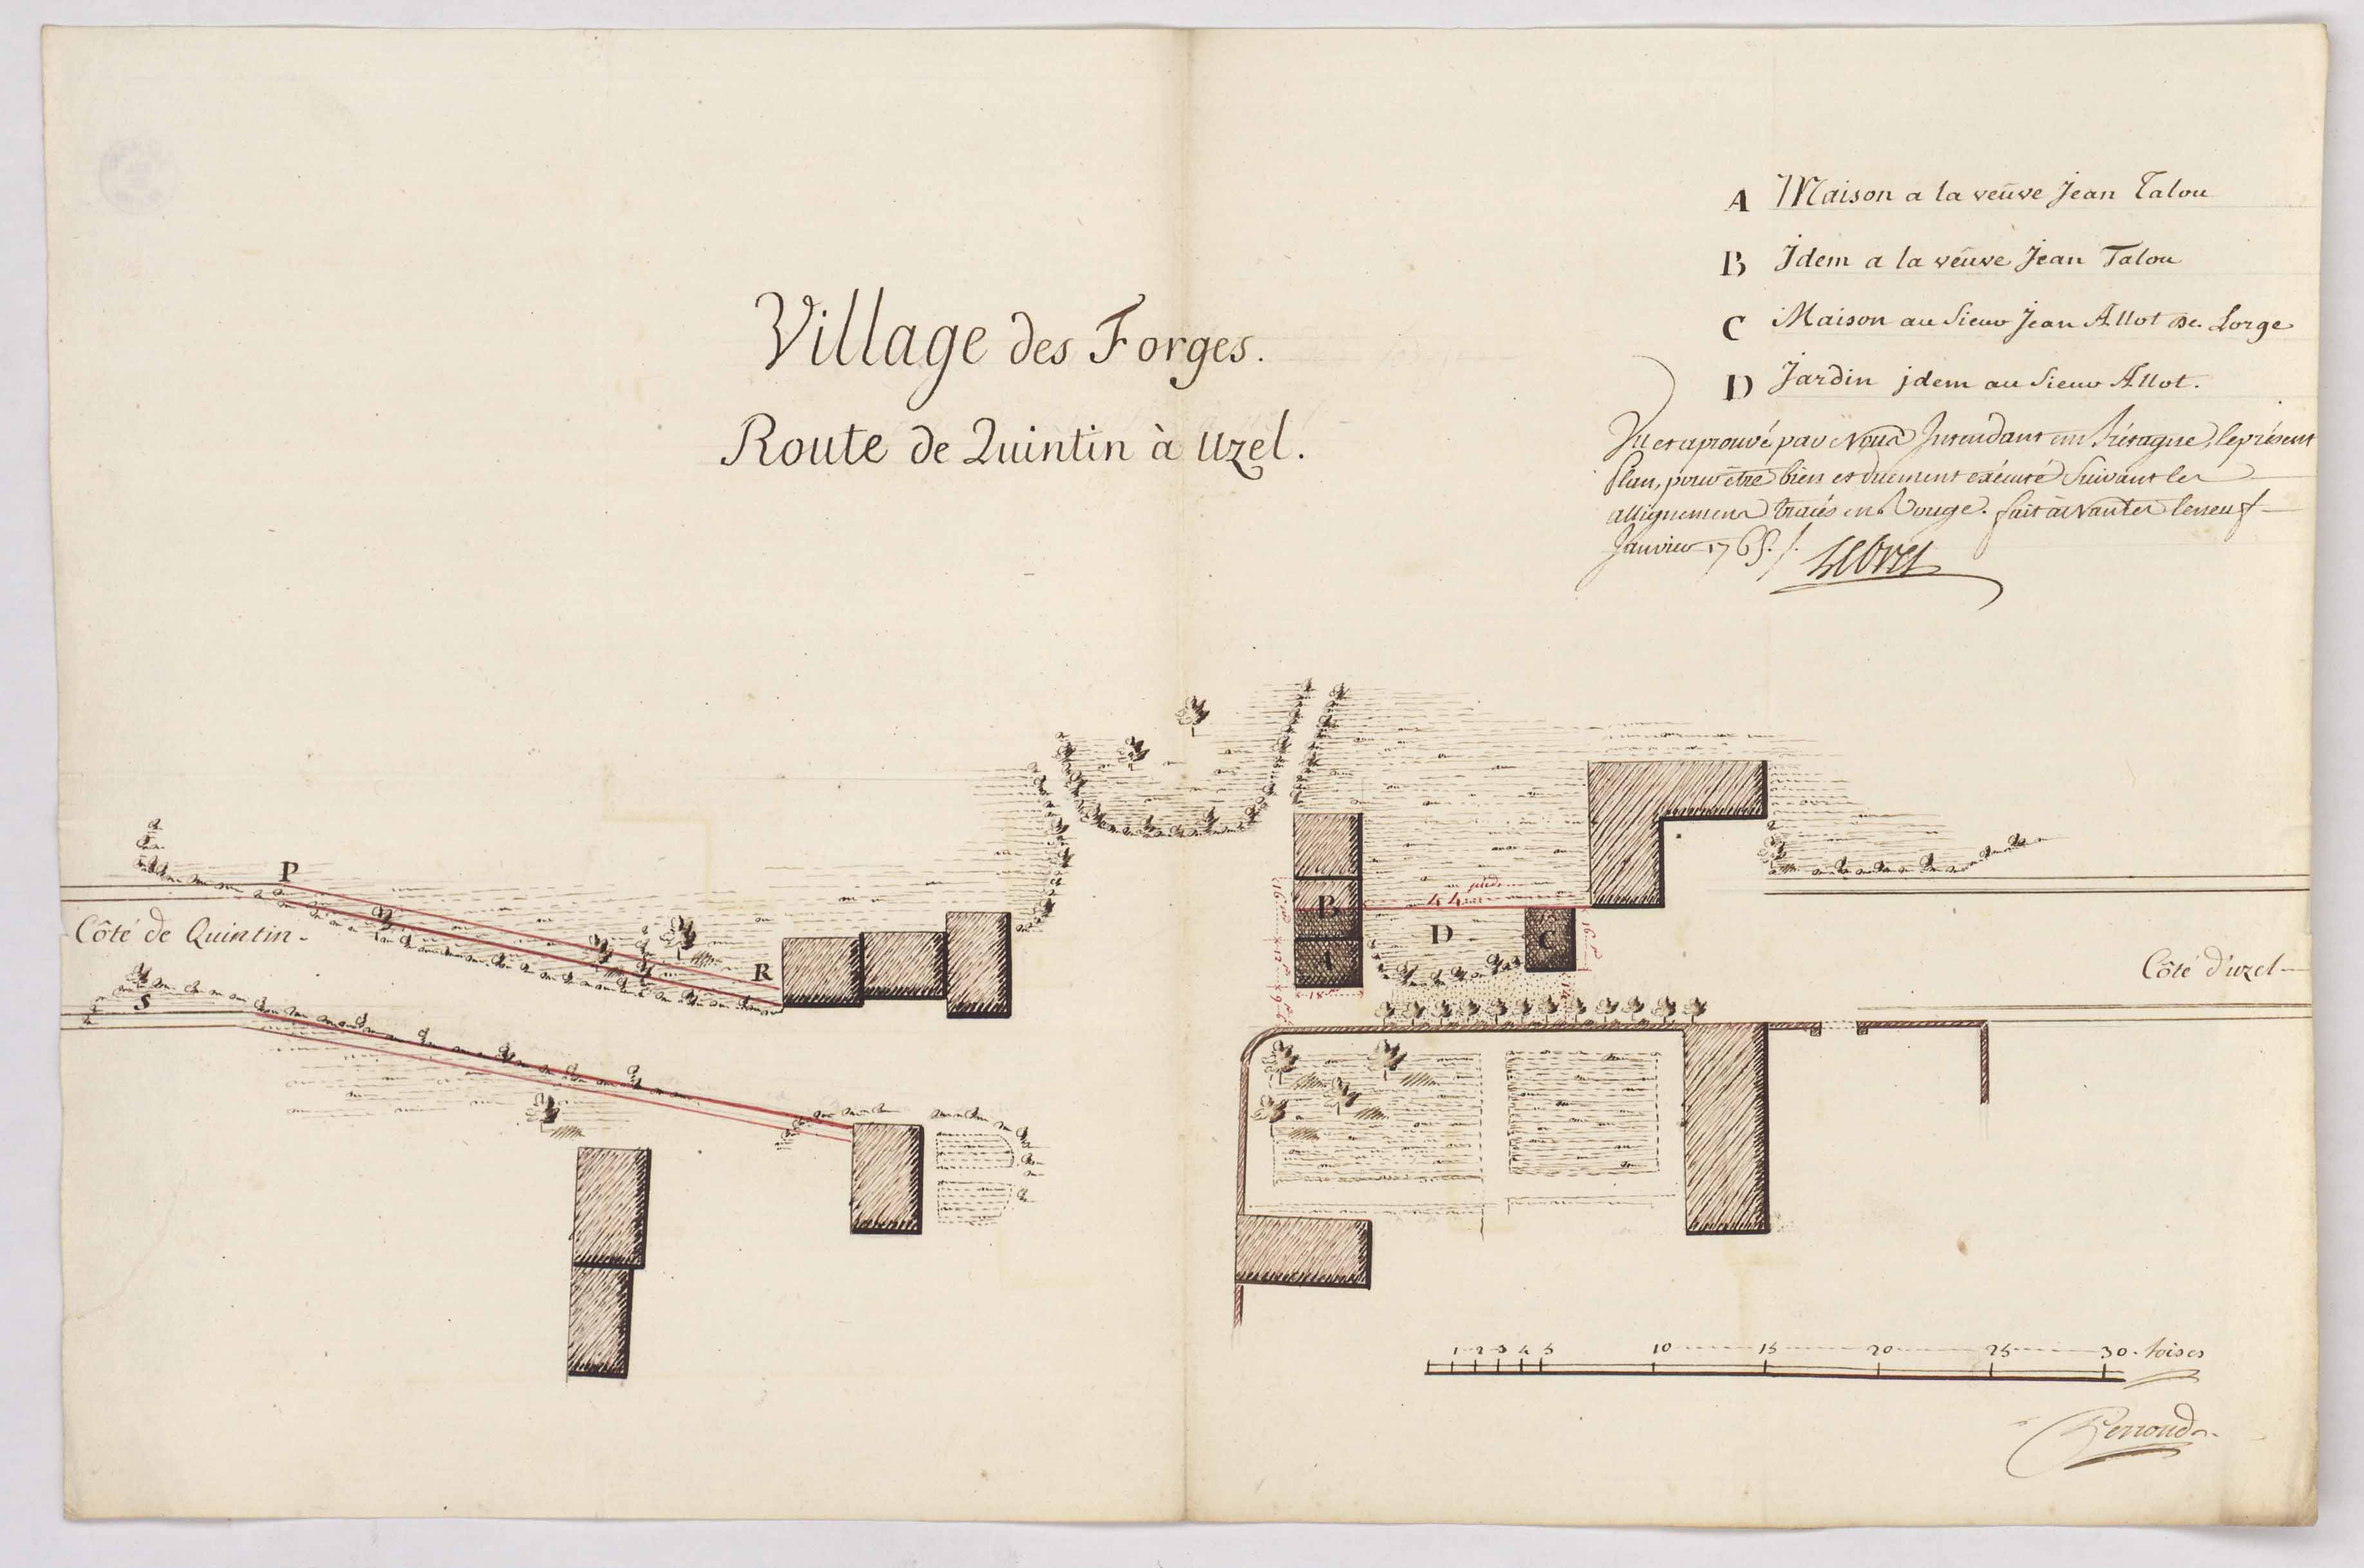 Village des Forges.
Route de Quintin à Uzel.
A Maison a la veûve Jean Talou
B Jdem a la veûve Jean Talou
C Maison au Sieur Jean Allot de Lorge
D Jardin jdem au Sieur Allot.
Vu et aprouvé par Nous Jntendant en Brétagne, le présent
Plan, pour être bien et duement exécuté Suivant les
allignemens tracés en Rouge. fait à Nantes le neuf
Janvier 1765./.
Lebret
P
Côté de Quintin
R
S
B
A
44 pieds
D
C
16 p
16 p
12 p
18
Côté d'uzel
1 2 3 4 5 10 15 20 25 30 toises